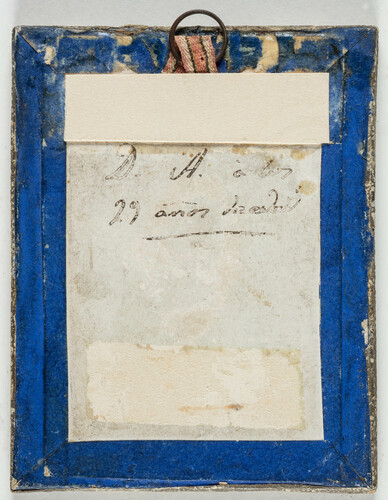 D. A. à los
29 años